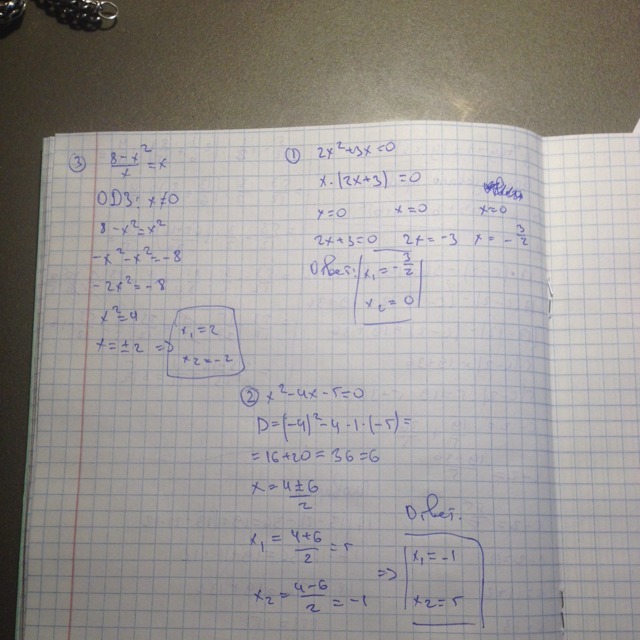 ③ (8-x²)/x = x
ОДЗ: x≠0
8-x²=x²
-x²-x²=-8
-2x²=-8
x²=4
x=±2 => x₁=2
x₂=-2
① 2x²+3x=0
x·(2x+3)=0
x=0 x=0 x=0
2x+3=0 2x=-3 x=-3/2
Ответ: x₁=-3/2
x₂=0
② x²-4x-5=0
D=(-4)²-4·1·(-5)=
=16+20=36=6
x=(4±6)/2
x₁=(4+6)/2=5
x₂=(4-6)/2=-1
=> Ответ.
x₁=-1
x₂=5